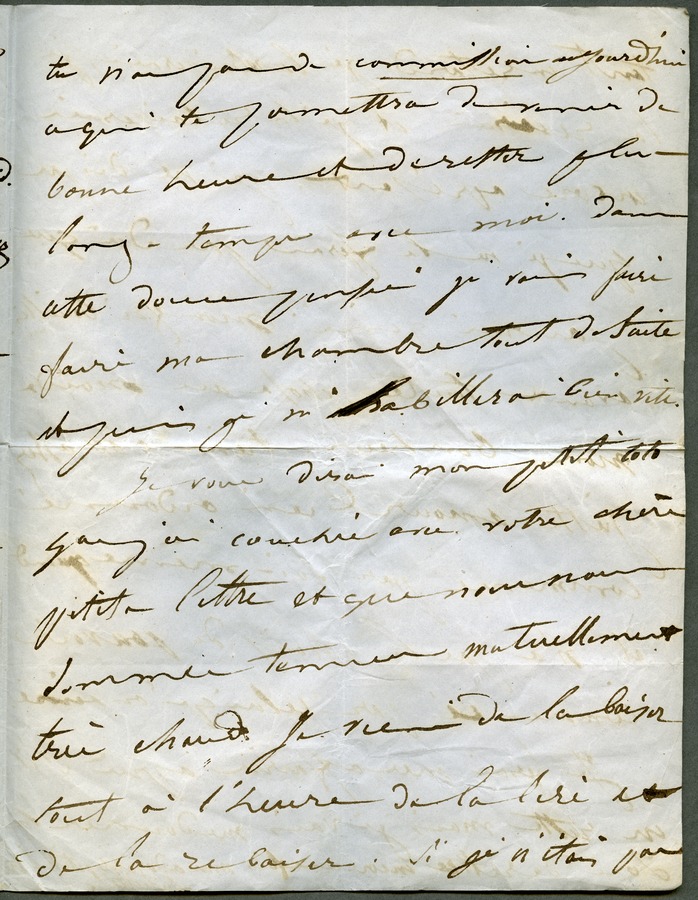 tu n'as pas de commission aujourd'hui
ce qui te permettra de venir de
bonne heure et de rester plus
long-temps avec moi. Dans
cette douce pensée je vais faire
faire ma chambre tout de suite
et puis je m'habillerai bien vite.
Je vous dirai mon petit toto
que j'ai couché avec votre chère
petite lettre et que nous nous
sommes tenus mutuellement
très chaud. Je viens de la baiser
tout à l'heure de la lire et
de la rebaiser. Si je n'étais pas